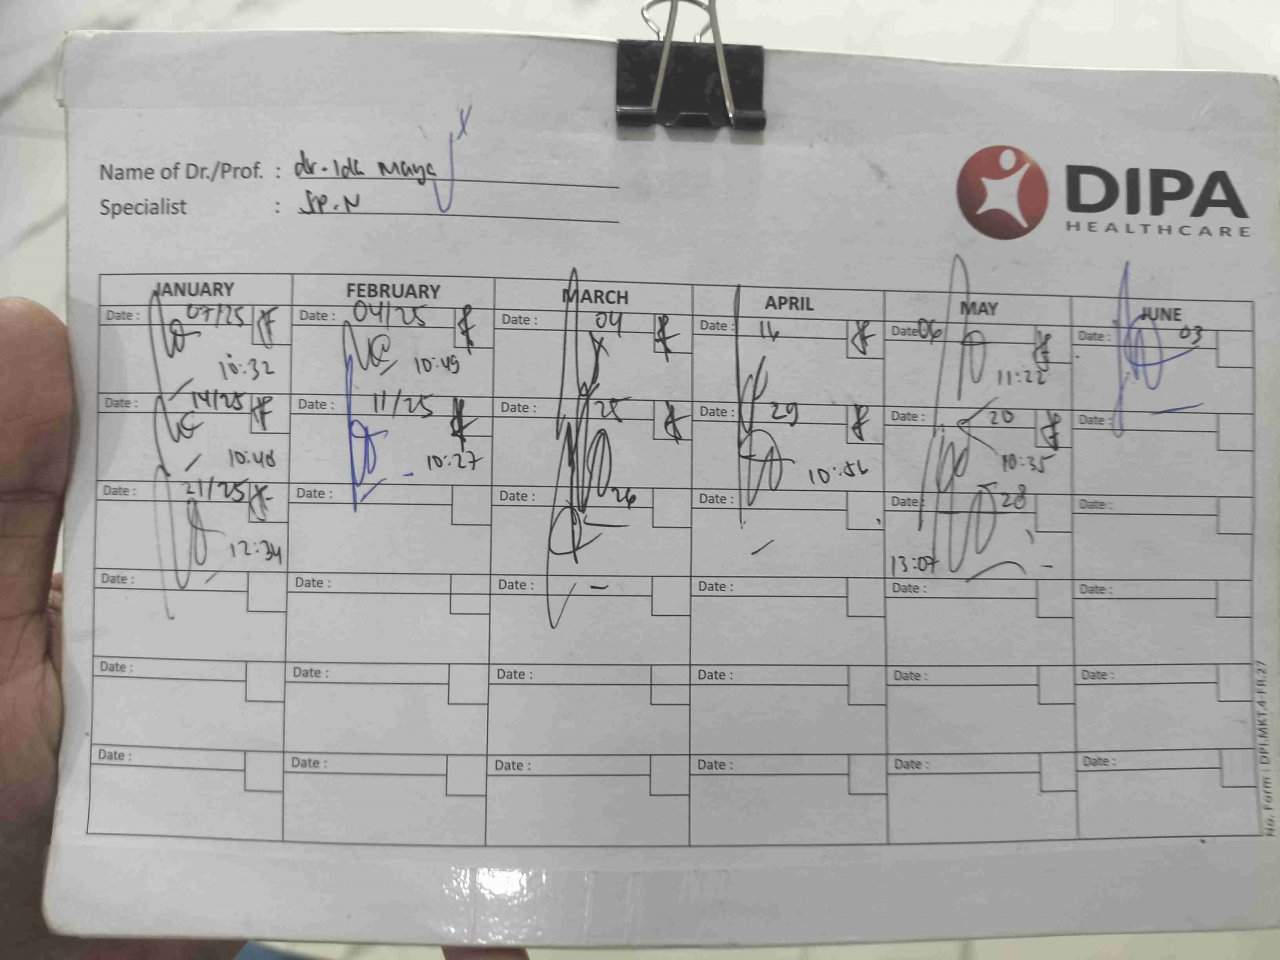 Name of Dr./Prof. : dr. Ida Maya
Specialist : Sp.N
DIPA
HEALTHCARE
JANUARY FEBRUARY MARCH APRIL MAY JUNE
Date : 07/25 Date : 04/25 Date : 04 Date : Date: 06 Date : 03
10:32 10:49 11:22
Date : 14/25 Date : 11/25 Date : 25 Date : 29 Date : 20 Date :
10:46 10:27 10:56 10:35
Date : 21/25 Date : Date : 26 Date : Date : 28 Date :
12:34 13:07
Date : Date : Date : Date : Date : Date :
Date : Date : Date : Date : Date : Date :
Date : Date : Date : Date : Date : Date :
No. Form : DPI.MKT.4-FR.27